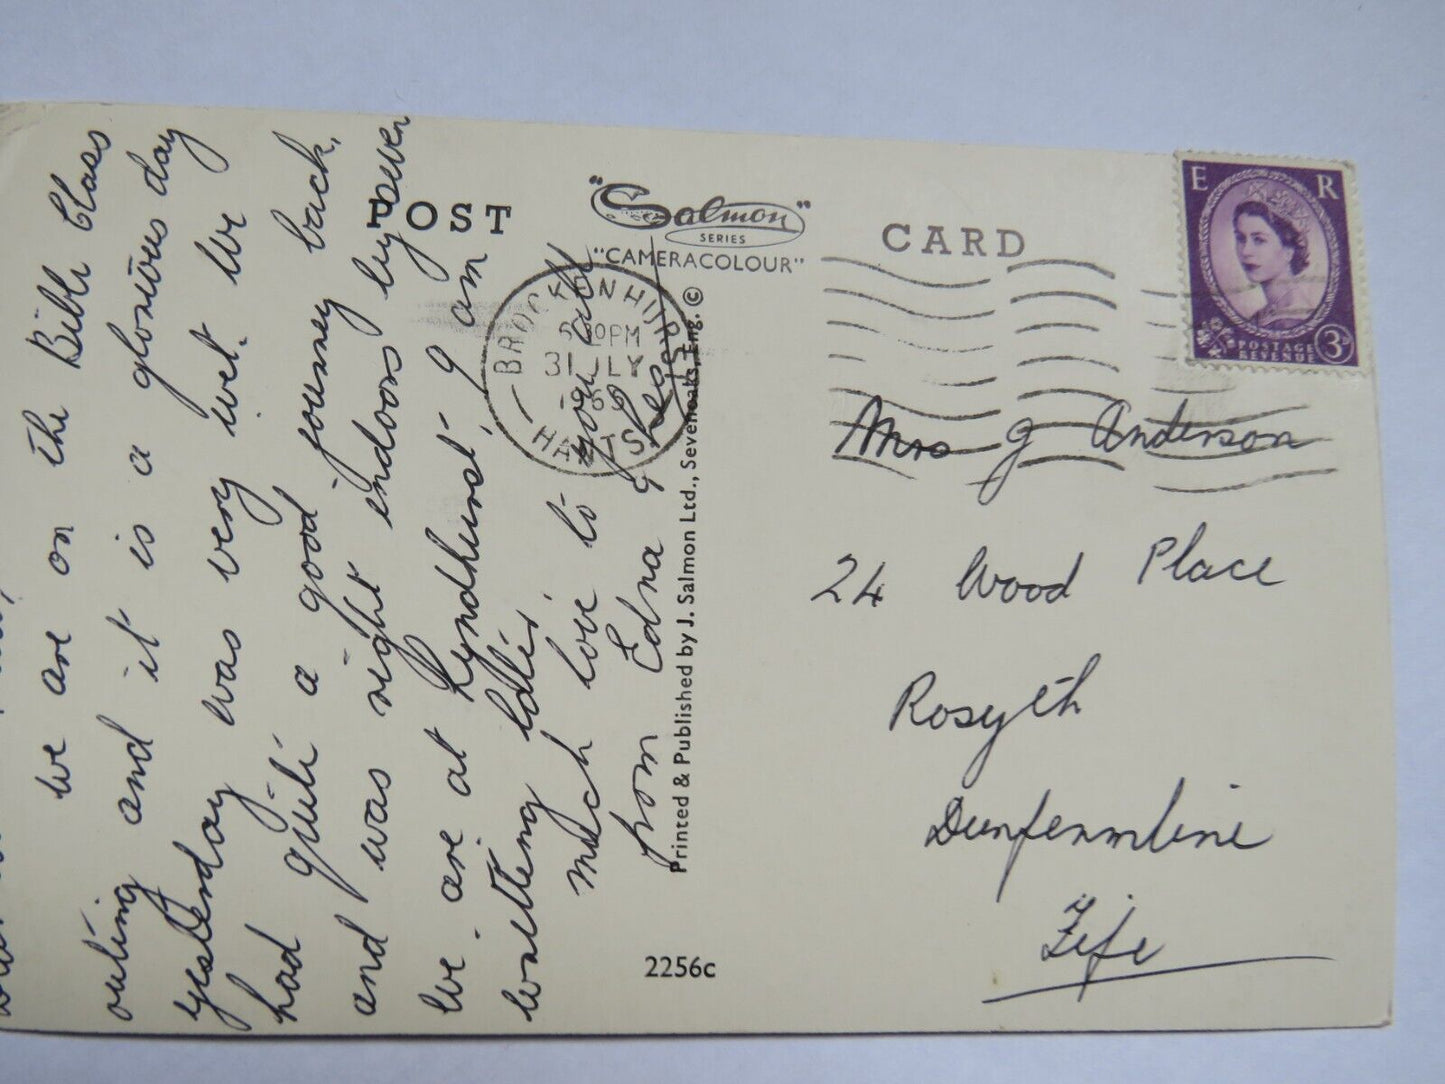 we are on the Bible Class
outing and it is a glorious day
yesterday was very wet. We
had quite a good journey back.
and was right indoors by seven
We are at Lyndhurst, I am
you all
much love to
from Edna &
POST CARD
"Salmon"
SERIES
"CAMERACOLOUR"
BROCKENHURST
PM
31 JLY
HANTS
Printed & Published by J. Salmon Ltd., Sevenoaks, Eng. ©
2256c
E R
POSTAGE
REVENUE
3D
Mrs J Anderson
24 Wood Place
Rosyth
Dunfermline
Fife